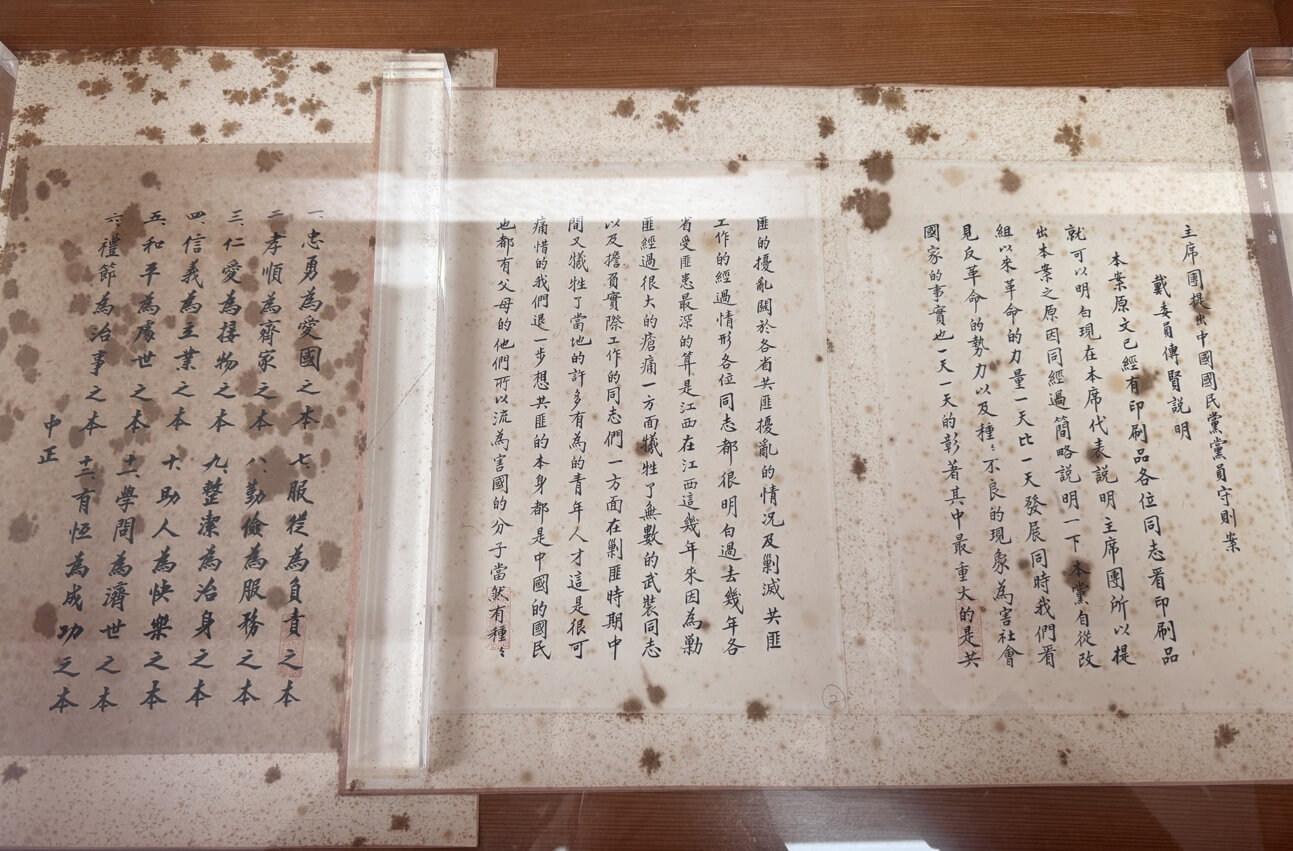 主席團提出中國國民黨黨員守則案
戴委員傳賢說明
本案原文已經有印刷品各位同志看印刷品
就可以明白現在本席代表說明主席團所以提
出本案之原因同經過簡略說明一下本黨自從改
組以來革命的力量一天比一天發展同時我們看
見反革命的勢力以及種〻不良的現象為害社會
國家的事實也一天一天的彰著其中最重大的是共
匪的擾亂關於各省共匪擾亂的情況及剿滅共匪
工作的經過情形各位同志都很明白過去幾年各
省受匪患最深的算是江西在江西這幾年來因為勦
匪經過很大的瘡痛一方面犧牲了無數的武裝同志
以及擔負實際工作的同志們一方面在剿匪時期中
間又犧牲了當地的許多有為的青年人才這是很可
痛惜的我們退一步想共匪的本身都是中國的國民
也都有父母的他們所以流為害國的分子當然有種〻
一、忠勇為愛國之本
二、孝順為齊家之本
三、仁愛為接物之本
四、信義為立業之本
五、和平為處世之本
六、禮節為治事之本
七、服從為負責之本
八、勤儉為服務之本
九、整潔為治身之本
十、助人為快樂之本
十一、學問為濟世之本
十二、有恆為成功之本
中正